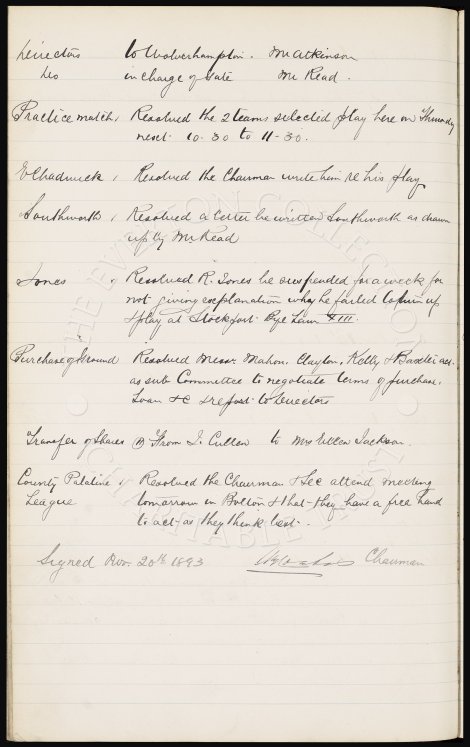 Directors to Wolverhampton. Mr Atkinson
Do in charge of Gate Mr Read.
Practice match, Resolved the 2 teams selected play here on Thursday
next. 10-30 to 11-30.
E Chadwick, Resolved the Chairman write him re his play
Southworth, Resolved a letter be written Southworth as drawn
up by Mr Read
Jones, Resolved R. Jones be suspended for a week for
not giving explanation why he failed to turn up
& play at Stockport. Bye Law XIII.
Purchase of Ground Resolved Messrs. Mahon, Clayton, Kelly & Baxter act
as sub Committee to negotiate terms of purchase.
Loan &c & report to Directors
Transfer of Shares From J. Cullen to Mrs Ellen Jackson.
County Palatine, Resolved the Chairman & Sec attend meeting
League tomorrow in Bolton & that they have a free hand
to act as they think best.
Signed Nov. 20th 1893 Chairman
THE EVERTON COLLECTION
CHARITABLE TRUST